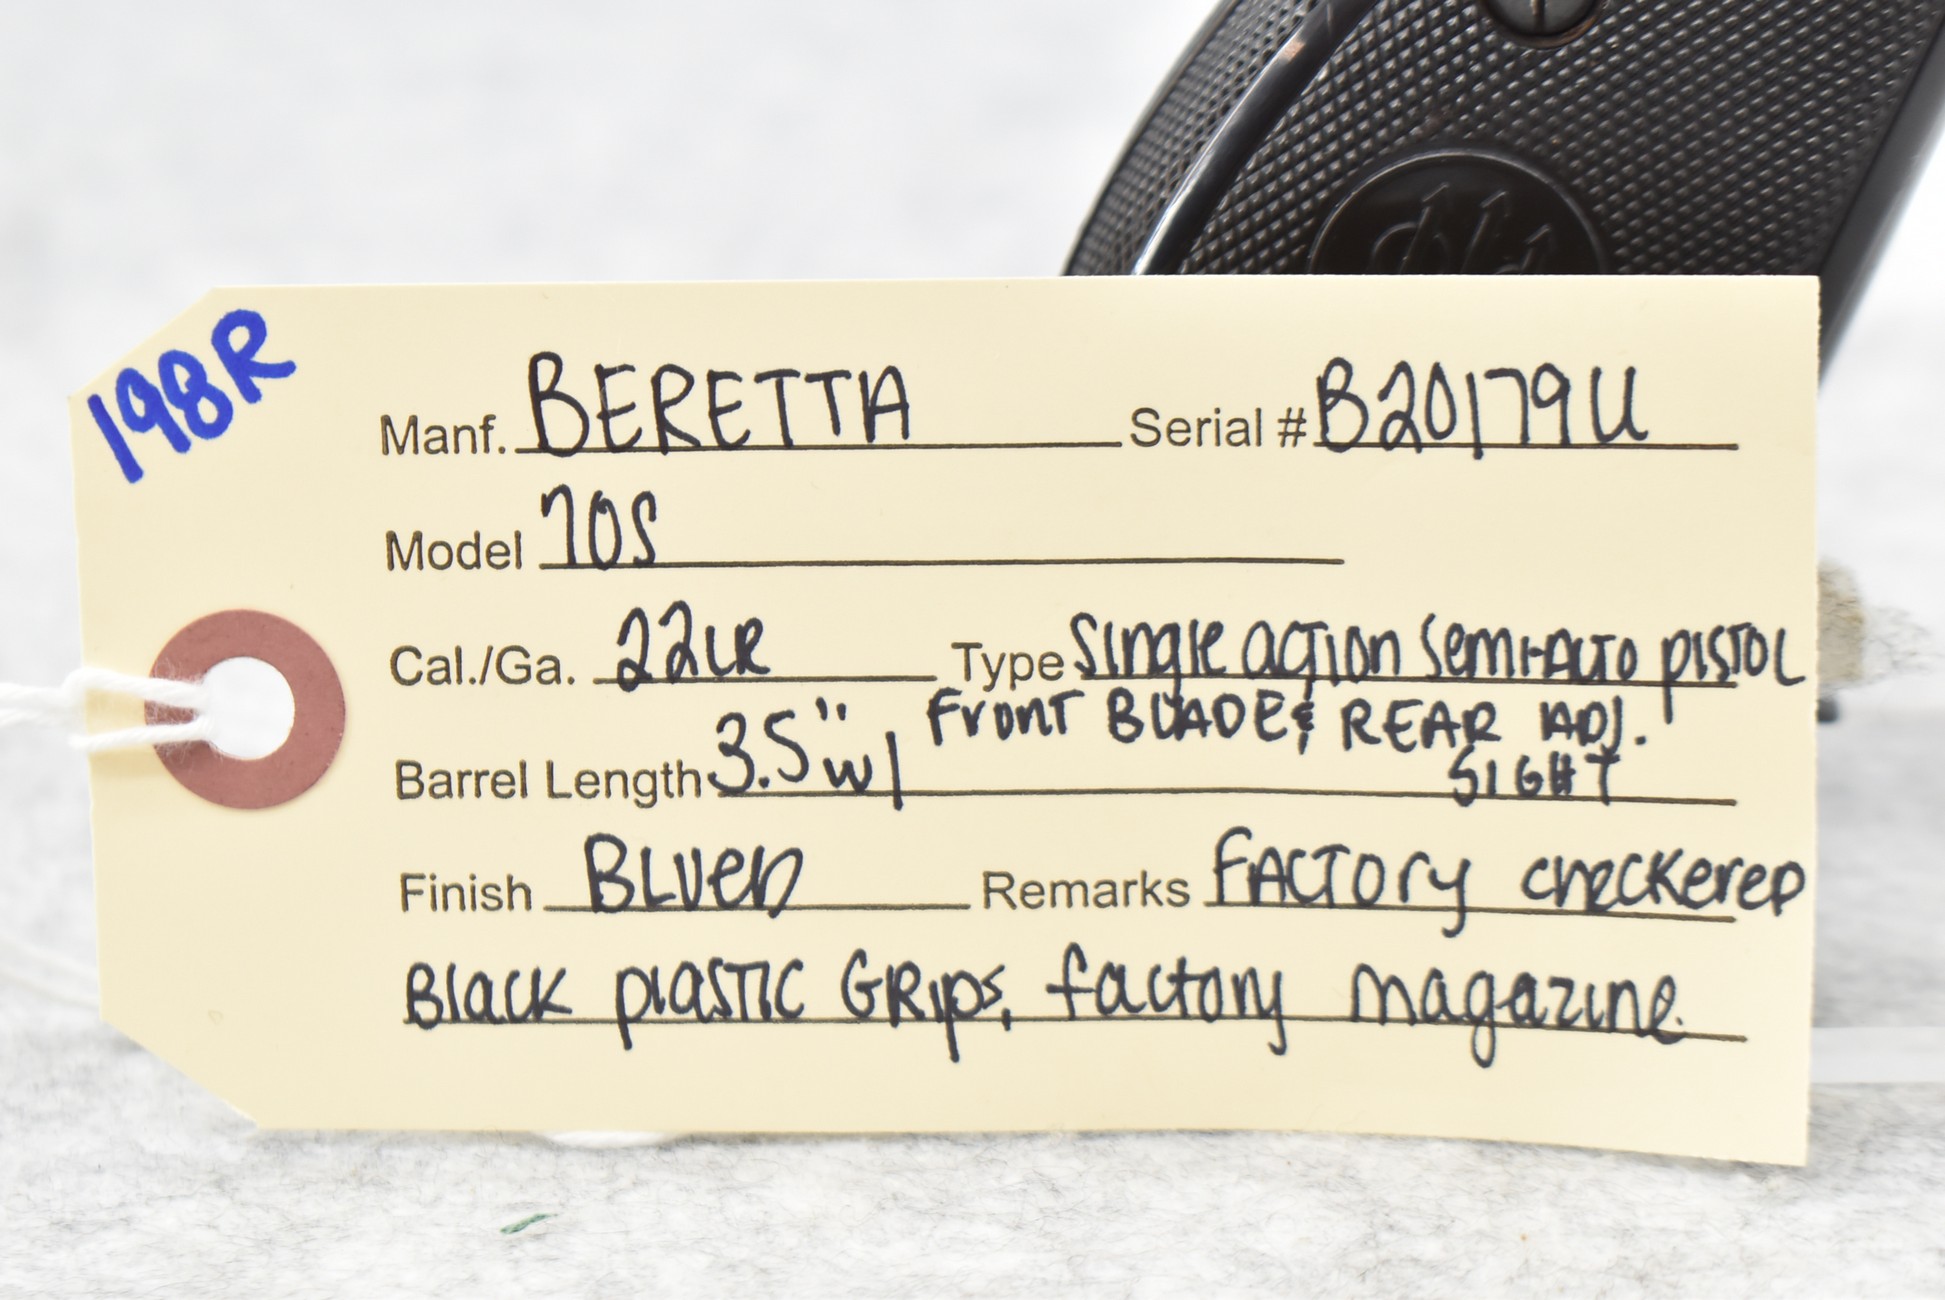 198R
Manf. BERETTA Serial # B20179U
Model 70S
Cal./Ga. 22LR Type Single action Semi-Auto PISTOL
Barrel Length 3.5" w/ Front BLADE & REAR ADJ.
SIGHT
Finish BLUED Remarks FACTORY checkered
Black plastic GRips, factory magazine.